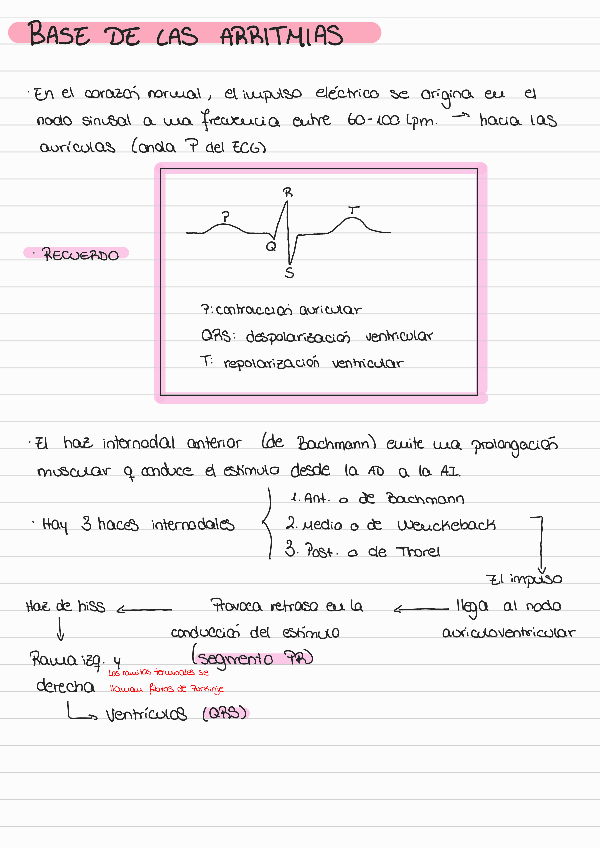 BASE DE LAS ARRITMIAS
· En el corazón normal, el impulso eléctrico se origina en el
nodo sinusal a una frecuencia entre 60-100 lpm. → hacia las
aurículas (onda P del ECG)
· RECUERDO
R
P
T
Q
S
P: contracción auricular
QRS: despolarización ventricular
T: repolarización ventricular
· El haz internodal anterior (de Bachmann) emite una prolongación
muscular q conduce el estímulo desde la AD a la AI.
· Hay 3 haces internodales
1. Ant. o de Bachmann
2. Medio o de Wenckeback
3. Post. o de Thorel
El impulso
llega al nodo
auriculoventricular
Provoca retraso en la
conducción del estímulo
(segmento PR)
Haz de hiss
Rama izq. y
derecha
Las ramitas terminales se
llaman fibras de Purkinje
Ventrículos (QRS)